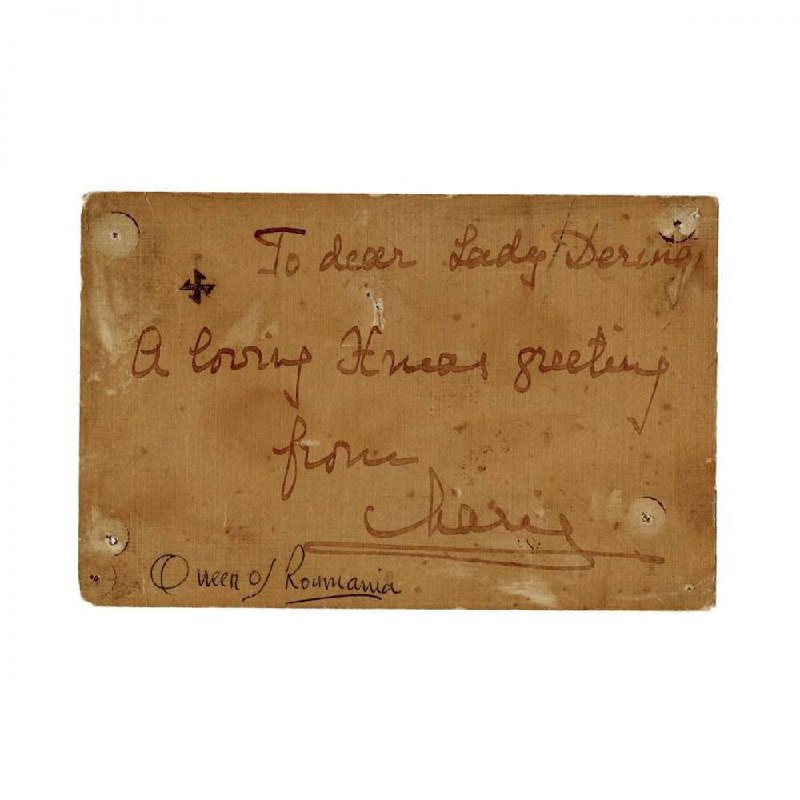 To dear Lady Dering
A loving Xmas greeting
from
Marie
Queen of Roumania